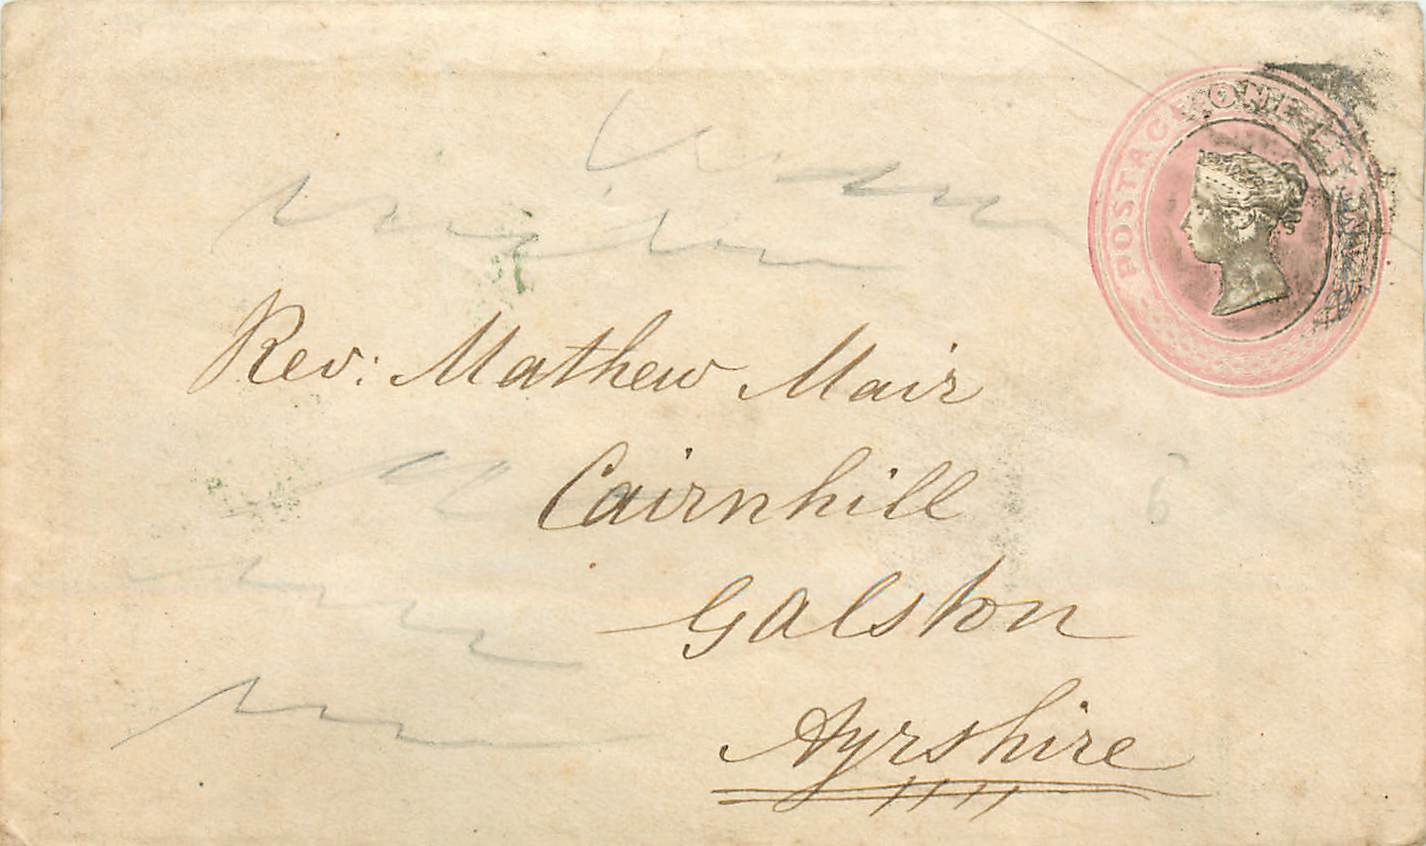 POSTAGE ONE PENNY
Rev: Mathew Mair
Cairnhill
Galston
Ayrshire
6